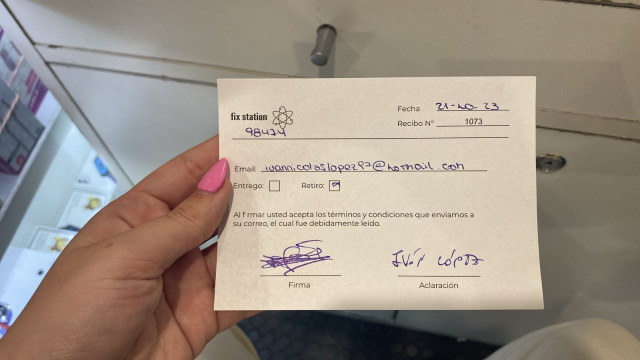 fix station
98474
Fecha 21-10-23
Recibo N° 1073
Email: ivannicolaslopez97@hotmail.com
Entrego: Retiro:
Al firmar usted acepta los términos y condiciones que enviamos a
su correo, el cual fue debidamente leído.
Iván López
Firma Aclaración